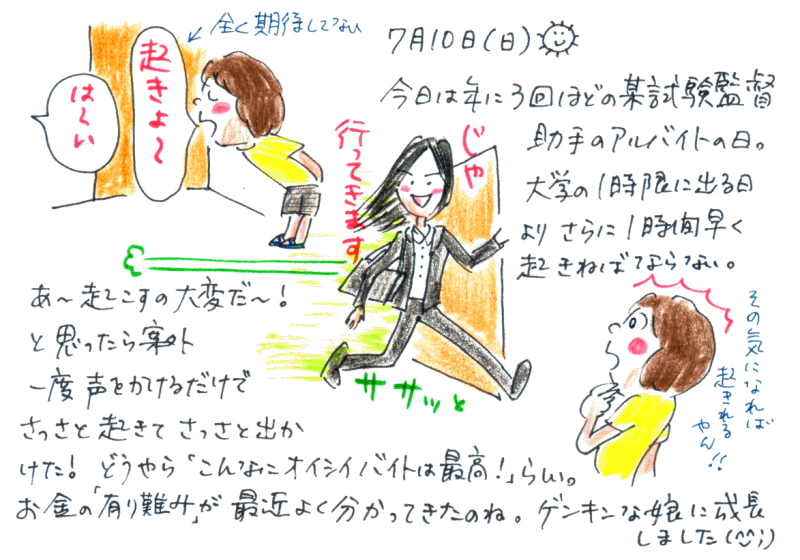 全く期待してない
起きよ〜
は〜い
7月10日(日)
今日は年に3回ほどの某試験監督
助手のアルバイトの日。
大学の1時限に出る日
よりさらに1時間早く
起きねばならない。
じゃ
行ってきます
ササッと
あ〜起こすの大変だ〜!
と思ったら案外
一度声をかけるだけで
さっさと起きてさっさと出か
けた! どうやら「こんなにオイシイバイトは最高!」らしい。
お金の「有り難み」が最近よく分かってきたのね。ゲンキンな娘に成長
しました(^^;)
その気になれば
起きれる
やん!!